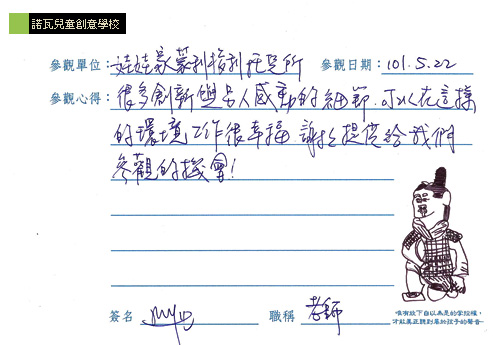 諾瓦兒童創意學校
參觀單位：娃娃家蒙利梭利托兒所 參觀日期：101.5.22
參觀心得：很多創新與令人感動的細節，可以在這樣
的環境工作很幸福 謝謝提供給我們
參觀的機會！
簽名 職稱 老師
唯有放下自以為是的掌控權，
才能真正聽到屬於孩子的聲音